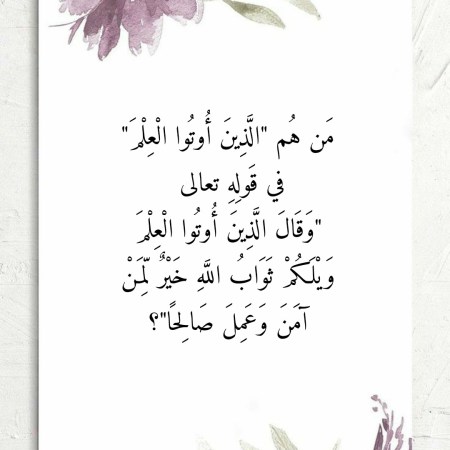 مَن هُم "الَّذِينَ أُوتُوا الْعِلْمَ"
في قَولِهِ تعالى
"وَقَالَ الَّذِينَ أُوتُوا الْعِلْمَ
وَيْلَكُمْ ثَوَابُ اللَّهِ خَيْرٌ لِّمَنْ
آمَنَ وَعَمِلَ صَالِحًا"؟